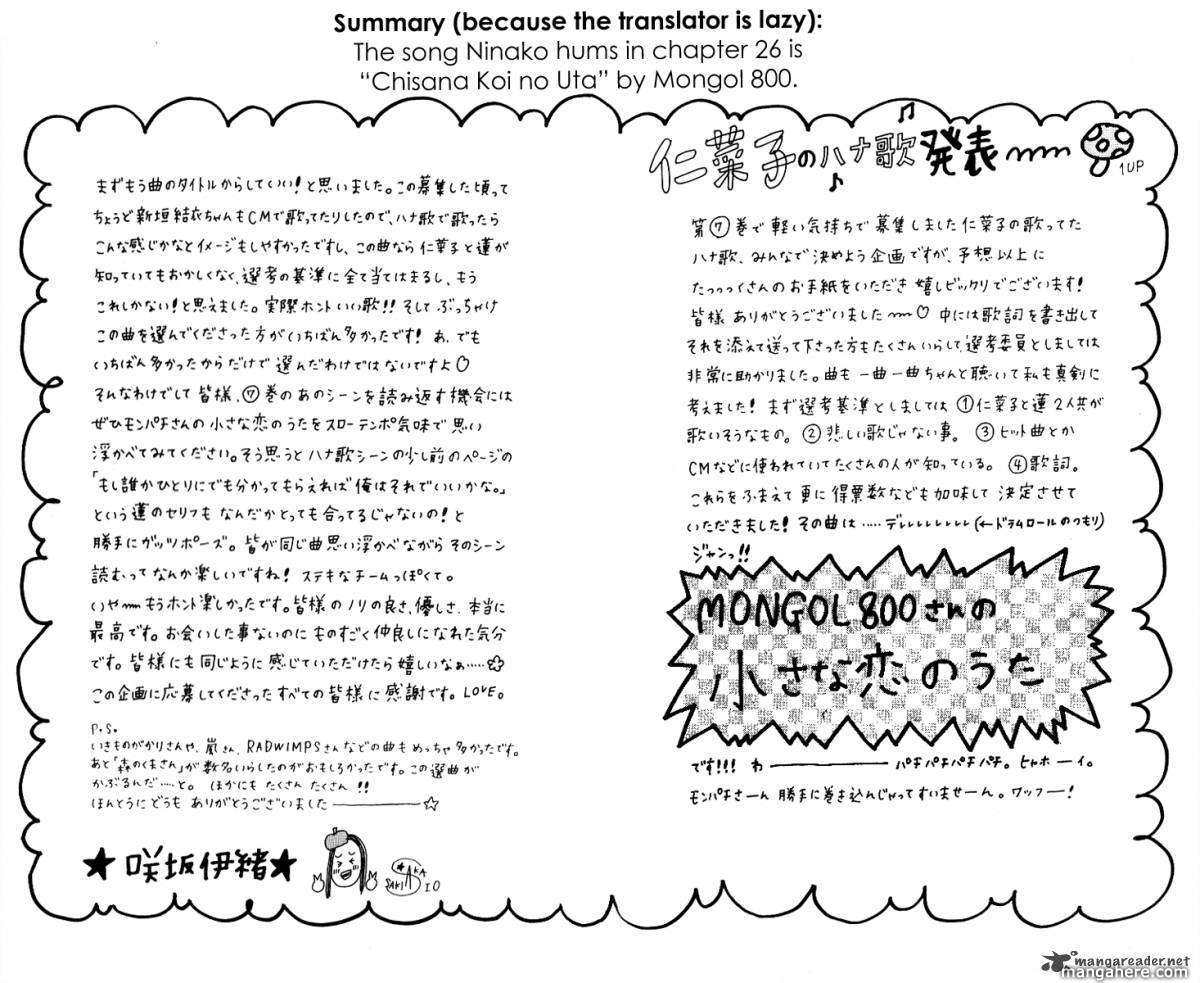 Summary (because the translator is lazy):
The song Ninako hums in chapter 26 is
“Chisana Koi no Uta” by Mongol 800.
仁菜子のハナ歌発表〜〜
1UP
第⑦巻で軽い気持ちで募集しました仁菜子の歌ってた
ハナ歌、みんなで決めよう企画ですが、予想以上に
たっっっくさんのお手紙をいただき嬉しビックリでございます!
皆様ありがとうございました〜〜♡ 中には歌詞を書き出して
それを添えて送って下さった方もたくさんいらして、選考委員としましては
非常に助かりました。曲も一曲一曲ちゃんと聴いて私も真剣に
考えました! まず選考基準としましては ①仁菜子と蓮2人共が
歌いそうなもの。 ②悲しい歌じゃない事。 ③ヒット曲とか
CMなどに使われていてたくさんの人が知っている。 ④歌詞。
これらをふまえて更に得票数なども加味して決定させて
いただきました! その曲は……デレレレレレレレ(←ドラムロールのつもり)
ジャンっ!!
MONGOL800さんの
小さな恋のうた
です!!! わ――――― パチパチパチパチ。ヒャホーイ。
モンパチさーん 勝手に巻き込んじゃってすいませーん。ワッフー!
まずもう曲のタイトルからしていい!と思いました。この募集した頃って
ちょうど新垣結衣ちゃんもCMで歌ってたりしたので、ハナ歌で歌ったら
こんな感じかなとイメージもしやすかったですし、この曲なら仁菜子と蓮が
知っていてもおかしくなく、選考の基準に全て当てはまるし、もう
これしかない!と思えました。実際ホントいい歌!! そしてぶっちゃけ
この曲を選んでくださった方がいちばん多かったです! あ、でも
いちばん多かったからだけで選んだわけではないですよ♡
そんなわけでして皆様、⑦巻のあのシーンを読み返す機会には
ぜひモンパチさんの小さな恋のうたをスローテンポ気味で思い
浮かべてみてください。そう思うとハナ歌シーンの少し前のページの
「もし誰かひとりにでも分かってもらえれば俺はそれでいいかな。」
という蓮のセリフもなんだかとっても合ってるじゃないの!と
勝手にガッツポーズ。皆が同じ曲思い浮かべながらそのシーン
読むってなんか楽しいですね! ステキなチームっぽくて。
いや〜〜もうホント楽しかったです。皆様のノリの良さ、優しさ、本当に
最高です。お会いした事ないのにものすごく仲良しになれた気分
です。皆様にも同じように感じていただけたら嬉しいなぁ……☆
この企画に応募してくださったすべての皆様に感謝です。LOVE。
P.S.
いきものがかりさんや、嵐さん、RADWIMPSさんなどの曲もめっちゃ多かったです。
あと「森のくまさん」が数名いらしたのがおもしろかったです。この選曲が
かぶるんだ……と。 ほかにもたくさんたくさん!!
ほんとうにどうもありがとうございました―――――☆
★咲坂伊緒★
SAKISAKA IO
mangareader.net
mangahere.com